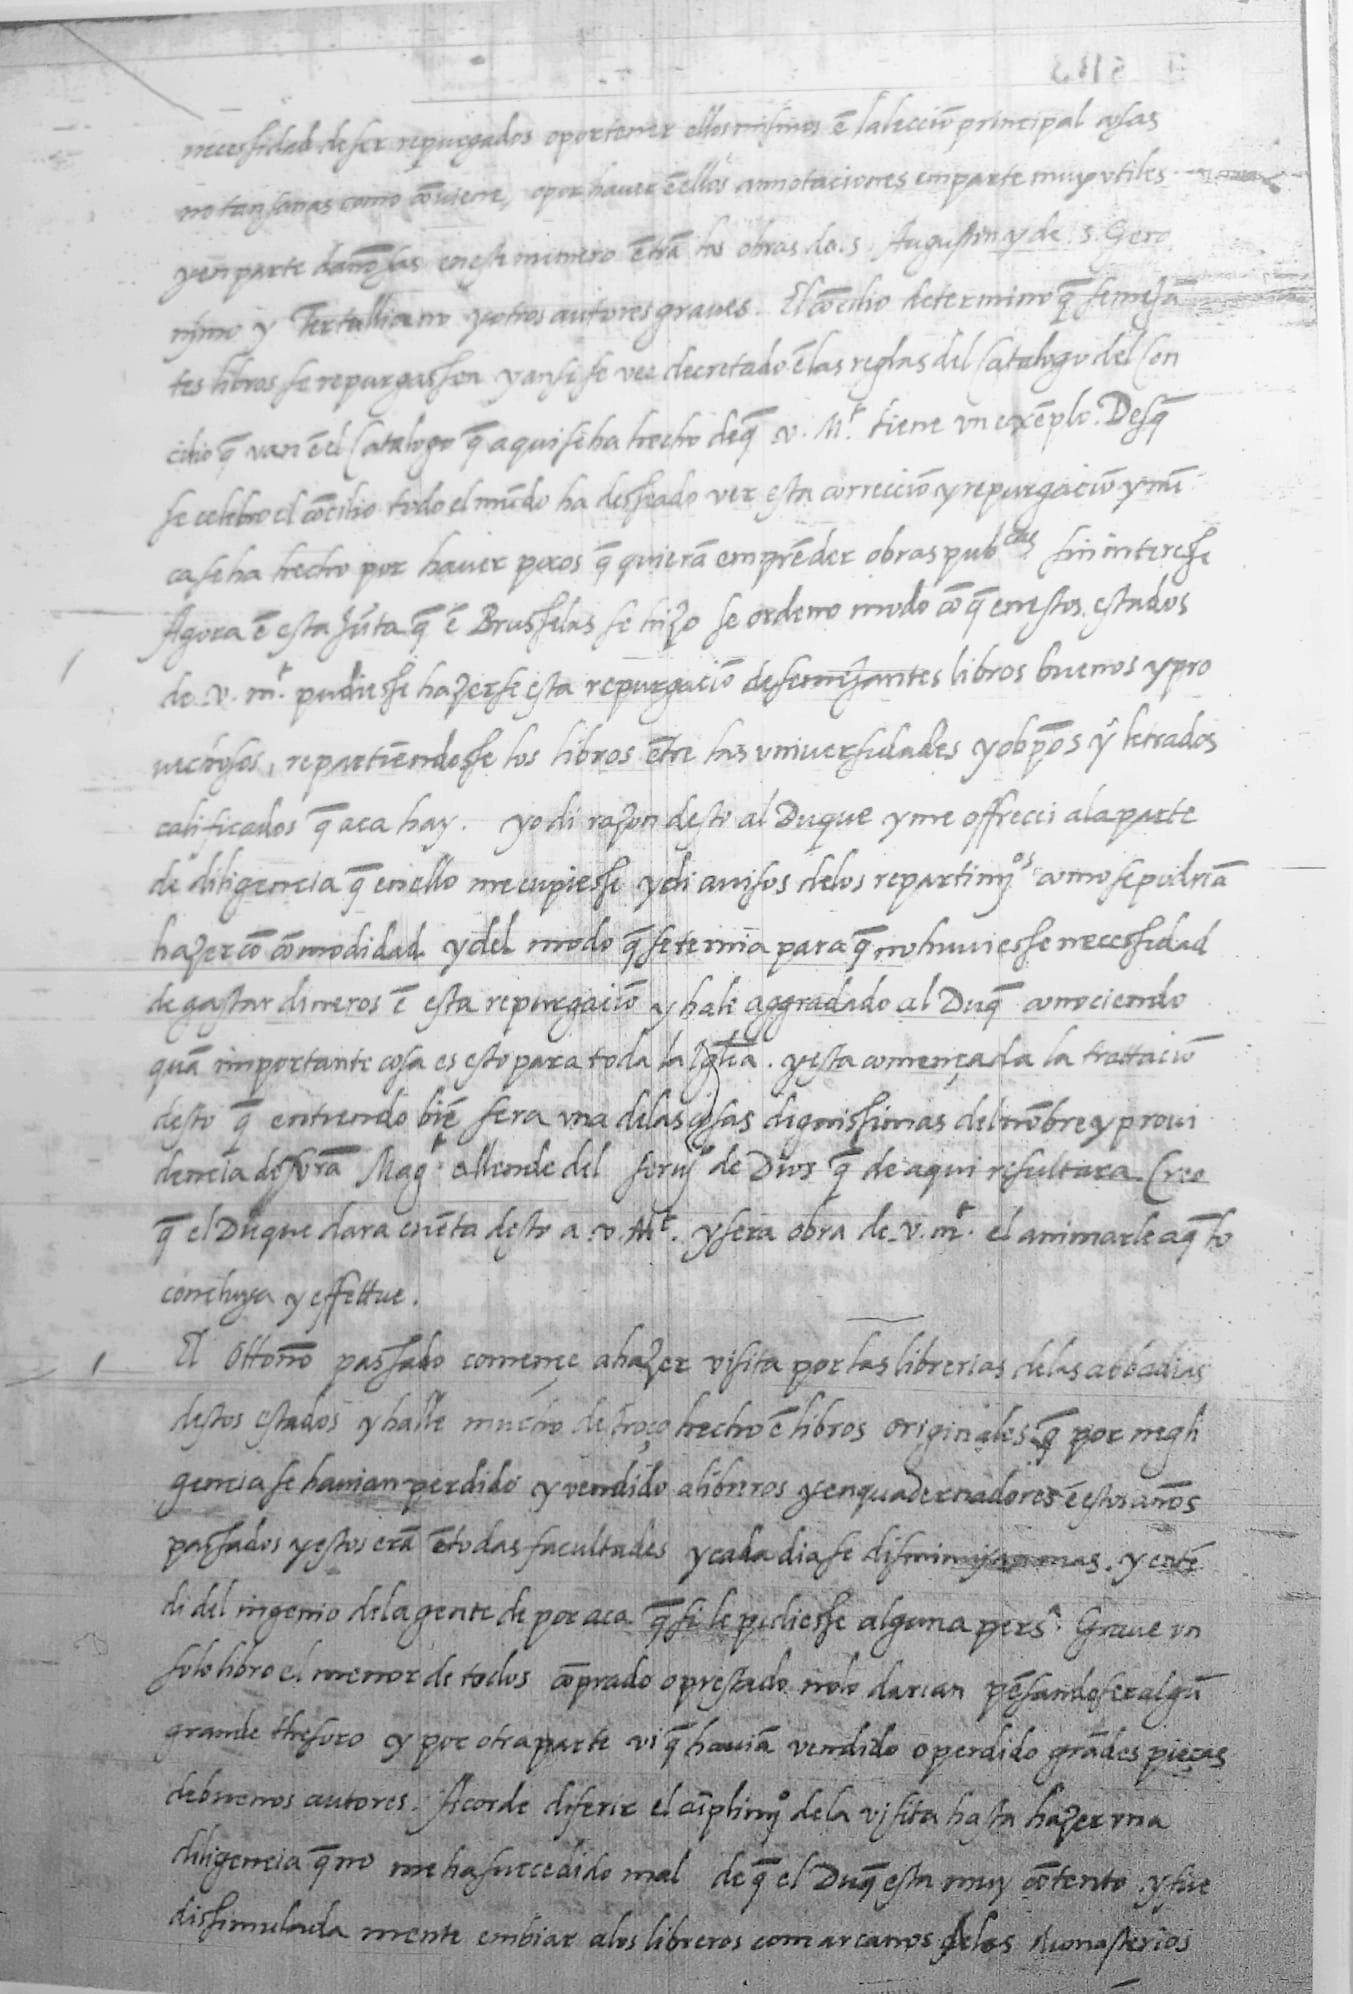 necessidad de ser repurgados o por tener ellos mismos ē la lecciō principal cosas
no tan sanas como cōviene, o por haver ē ellos annotaciones em parte muy utiles
y en parte dañosas en este numero ētrā las obras de .s. Augustin y de .s. Gero
nymo y Tertulliano y otros autores graves. El cōcilio determino q̄ semejā
tes libros se repurgassen y ansi se vee decretado ē las reglas del Catalogo del Con
cilio q̄ van ē el Catalogo q̄ aqui se ha hecho de q̄ .v. M.t tiene un exēplo. Desq̄
se celebro el cōcilio todo el mūdo ha desseado ver esta correcciō y repurgaciō y nū
ca se ha hecho por haver pocos q̄ quierā emprēder obras pub.cas sin interesse
Agora ē esta jūta q̄ ē Brusselas se hizo se ordeno modo cō q̄ en estos estados
de .v. m.t pudiesse hazerse esta repurgaciō de semejantes libros buenos y pro
vechosos, repartiēndosse los libros ētre las universidades y obp̄os y letrados
calificados q̄ aca hay. yo di razon desto al Duque y me offreci a la parte
de diligencia q̄ en ello me cupiesse y di avisos de los repartimj.os como se podriā
hazer cō cōmodidad y del modo q̄ se ternia para q̄ no huviesse necessidad
de gastar dineros ē esta repurgaciō y hale aggradado al Duq̄ conociendo
quā importante cosa es esto para toda la Igl̄ia. y esta començada la trattaciō
desto q̄ entiendo biē sera una de las cosas dignissimas del nōbre y provi
dencia de su rā Mag.t allende del servj.o de Dios q̄ de aqui resultara. Creo
q̄ el Duque dara cuēta desto a .v. M.t. y sera obra de .v. m.t. el animarle a q̄ lo
concluya y effettue.
El Ottoño passado comence a hazer visita por las librerias de las abbadias
destos estados y halle mucho destroço hecho ē libros originales q̄ por negli
gencia se havian perdido y vendido a libreros y enquadernadores ē estos años
passados y estos erā ē todas facultades y cada dia se disminuyan mas. y entē
di del ingenio de la gente de por aca q̄ si le pidiesse alguna pers.a Grave un
solo libro el menor de todos cōprado o prestado no lo darian pēsando ser algū
grande thesoro y por otra parte vi q̄ haviā vendido o perdido grādes pieças
de buenos autores. Acorde diferir el cūplimj.o de la visita hasta hazer una
diligencia q̄ no me ha succedido mal de q̄ el Duq̄ esta muy cōtento. y fue
dissimulada mente embiar a los libreros comarcanos de los Monasterios